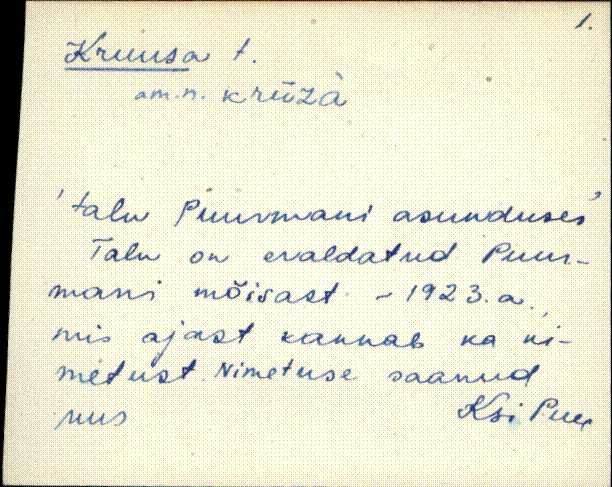 1.
Kruusa t.
am.n. krūzà
'talu Puurmani asunduses'
Talu on eraldatud Puur-
mani mõisast - 1923.a.,
mis ajast kannab ka ni-
metust. Nimetuse saanud
uus
Ksi Puu